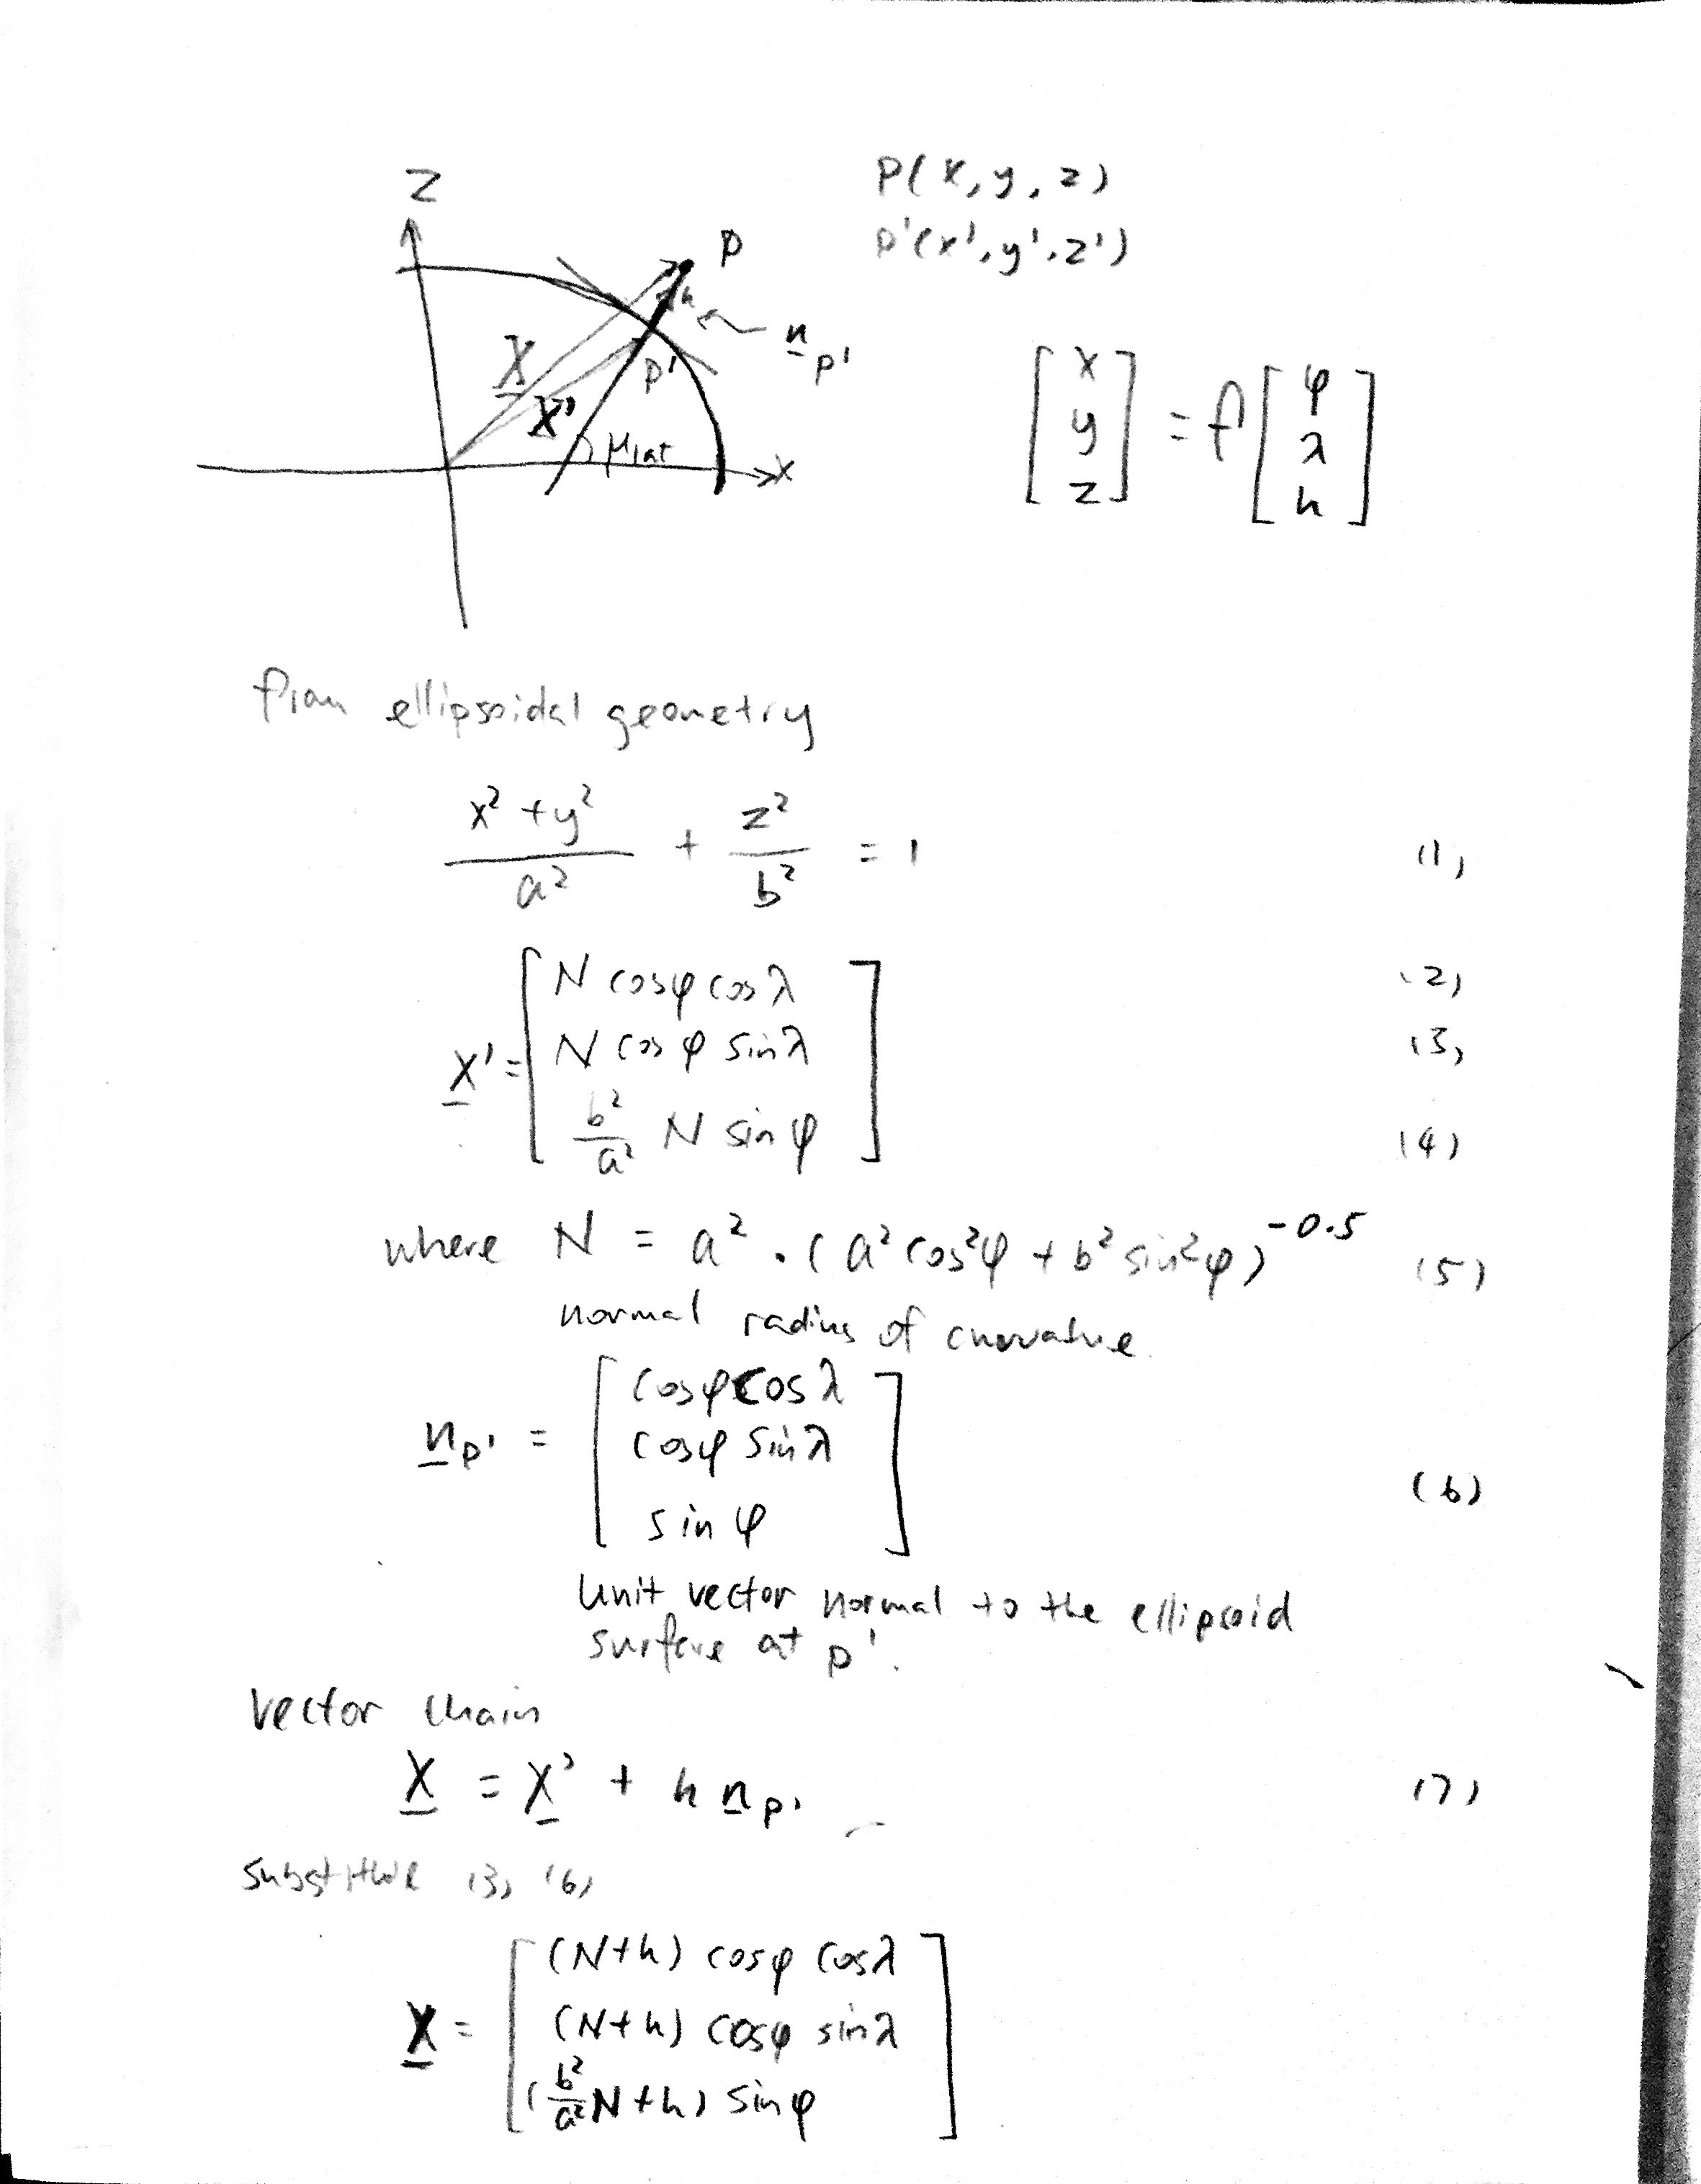 Z
P(x, y, z)
P'(x', y', z')
P
h
n_p'
X
P'
X'
μlat
X
[x y z] = f[φ λ h]
from ellipsoidal geometry
(x² + y²)/a² + z²/b² = 1 (1)
N cosφ cosλ (2)
X' = N cosφ sinλ (3)
b²/a² N sinφ (4)
where N = a² · (a² cos²φ + b² sin²φ)^-0.5 (5)
normal radius of curvature.
cosφ cosλ
n_p' = cosφ sinλ
sinφ (6)
Unit vector normal to the ellipsoid
surface at p'.
Vector chain
X = X' + h n_p' (7)
Substitute (3) (6)
(N+h) cosφ cosλ
X = (N+h) cosφ sinλ
(b²/a² N+h) sinφ